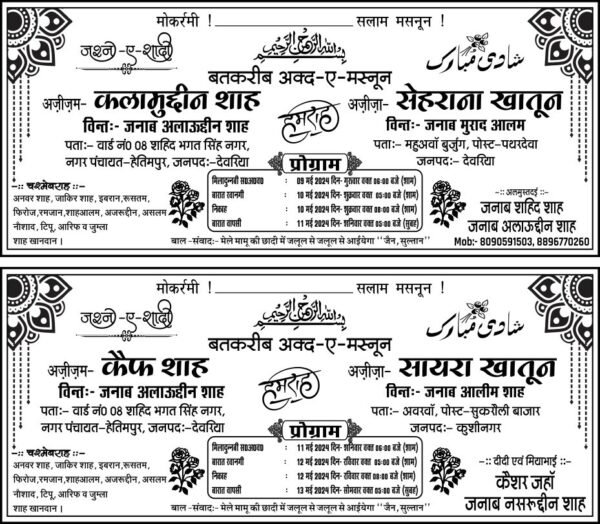 मोकर्रमी ! सलाम मसनून !
जश्ने-ए-शादी
بسم الله الرحمن الرحيم
شادی مبارک
बतकरीब अक्द-ए-मस्नून
अज़ीज़म- कलामुद्दीन शाह
हमराह
अज़ीज़ा- सेहराना खातून
विन्तः- जनाब अलाऊद्दीन शाह
विन्तः- जनाब मुराद आलम
पताः- वार्ड नं0 08 शहिद भगत सिंह नगर,
नगर पंचायत-हेतिमपुर, जनपदः-देवरिया
पताः- महुअवाँ बुर्जुग, पोस्ट-पथरदेवा
जनपदः- देवरिया
प्रोग्राम
मिलादुन्नबी स0अ0व0 : 09 मई 2024 दिन- गुरुवार वक्त 06:00 बजे (शाम)
बारात रवानगी : 10 मई 2024 दिन- शुक्रवार वक्त 05:00 बजे (शाम)
निकाह : 10 मई 2024 दिन- शुक्रवार वक्त 08:00 बजे (शाम)
बारात वापसी : 11 मई 2024 दिन- शनिवार वक्त 05:00 बजे (सुबह)
-:: चश्मेबराह ::-
अनवर शाह, जाकिर शाह, इबरान,रूसतम,
फिरोज,रमजान,शाहआलम, अजरूद्दीन, असलम
नौशाद, टिपू, आरिफ व जुम्ला
शाह खानदान ।
-:: अलमुस्तदई ::-
जनाब शहिद शाह
जनाब अलाऊद्दीन शाह
Mob:- 8090591503, 8896770260
बाल -संवादः- मेले मामू की छादी में जलूल से जलूल से आईयेगा ''जैन,सुल्तान''
मोकर्रमी ! सलाम मसनून !
जश्ने-ए-शादी
بسم الله الرحمن الرحيم
شادی مبارک
बतकरीब अक्द-ए-मस्नून
अज़ीज़म- कैफ शाह
हमराह
अज़ीज़ा- सायरा खातून
विन्तः- जनाब अलाऊद्दीन शाह
विन्तः- जनाब आलीम शाह
पताः- वार्ड नं0 08 शहिद भगत सिंह नगर,
नगर पंचायत-हेतिमपुर, जनपदः-देवरिया
पताः- अवरवाँ, पोस्ट-सुकरौली बाजार
जनपदः- कुशीनगर
प्रोग्राम
मिलादुन्नबी स0अ0व0 : 11 मई 2024 दिन- शनिवार वक्त 06:00 बजे (शाम)
बारात रवानगी : 12 मई 2024 दिन- रविवार वक्त 05:00 बजे (शाम)
निकाह : 12 मई 2024 दिन- रविवार वक्त 08:00 बजे (शाम)
बारात वापसी : 13 मई 2024 दिन- सोमवार वक्त 05:00 बजे (सुबह)
-:: चश्मेबराह ::-
अनवर शाह, जाकिर शाह, इबरान,रूसतम,
फिरोज,रमजान,शाहआलम, अजरूद्दीन, असलम
नौशाद, टिपू, आरिफ व जुम्ला
शाह खानदान ।
-:: दीदी एवं मियाभाई ::-
कैशर जहाँ
जनाब नसरूद्दीन शाह
बाल -संवादः- मेले मामू की छादी में जलूल से जलूल से आईयेगा ''जैन,सुल्तान''